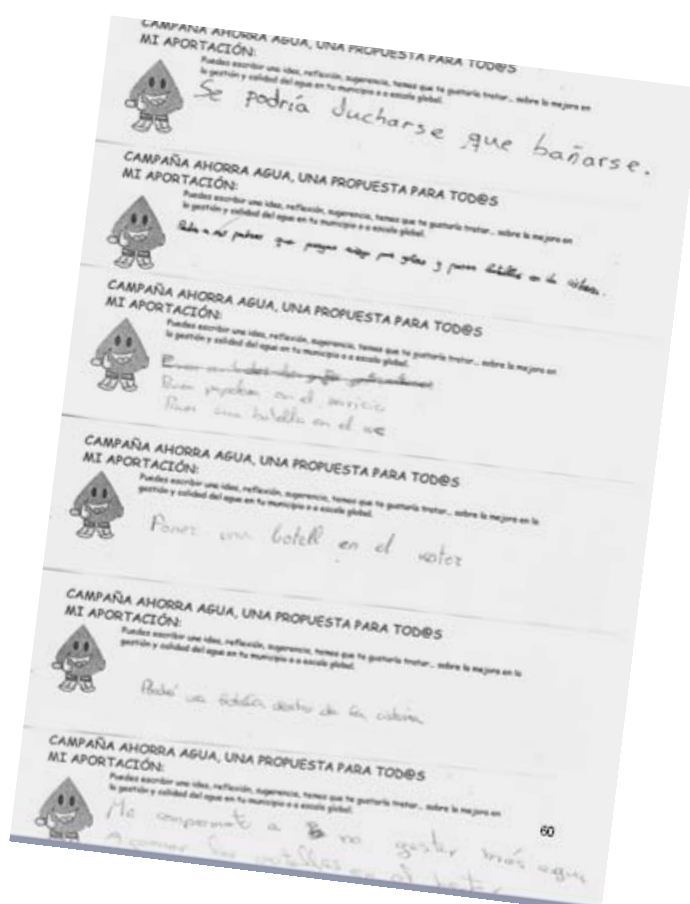 CAMPAÑA AHORRA AGUA, UNA PROPUESTA PARA TOD@S
MI APORTACIÓN:
Puedes escribir una idea, reflexión, sugerencia, temas que te gustaría tratar... sobre la mejora en
la gestión y calidad del agua en tu municipio o a escala global.
Se podría ducharse que bañarse.
CAMPAÑA AHORRA AGUA, UNA PROPUESTA PARA TOD@S
MI APORTACIÓN:
Puedes escribir una idea, reflexión, sugerencia, temas que te gustaría tratar... sobre la mejora en
la gestión y calidad del agua en tu municipio o a escala global.
a mis padres que pongan riego por goteo y poner botellas en la cisterna.
CAMPAÑA AHORRA AGUA, UNA PROPUESTA PARA TOD@S
MI APORTACIÓN:
Puedes escribir una idea, reflexión, sugerencia, temas que te gustaría tratar... sobre la mejora en
la gestión y calidad del agua en tu municipio o a escala global.
Poner papelera en el servicio
Poner una botella en el wc
CAMPAÑA AHORRA AGUA, UNA PROPUESTA PARA TOD@S
MI APORTACIÓN:
Puedes escribir una idea, reflexión, sugerencia, temas que te gustaría tratar... sobre la mejora en la
gestión y calidad del agua en tu municipio o a escala global.
Poner una botell en el vater
CAMPAÑA AHORRA AGUA, UNA PROPUESTA PARA TOD@S
MI APORTACIÓN:
Puedes escribir una idea, reflexión, sugerencia, temas que te gustaría tratar... sobre la mejora en la
gestión y calidad del agua en tu municipio o a escala global.
una botella dentro de la cisterna
CAMPAÑA AHORRA AGUA, UNA PROPUESTA PARA TOD@S
MI APORTACIÓN:
Puedes escribir una idea, reflexión, sugerencia, temas que te gustaría tratar... sobre la mejora en
la gestión y calidad del agua en tu municipio o a escala global.
Me comprometo a no gastar más agua
60
botellas en el